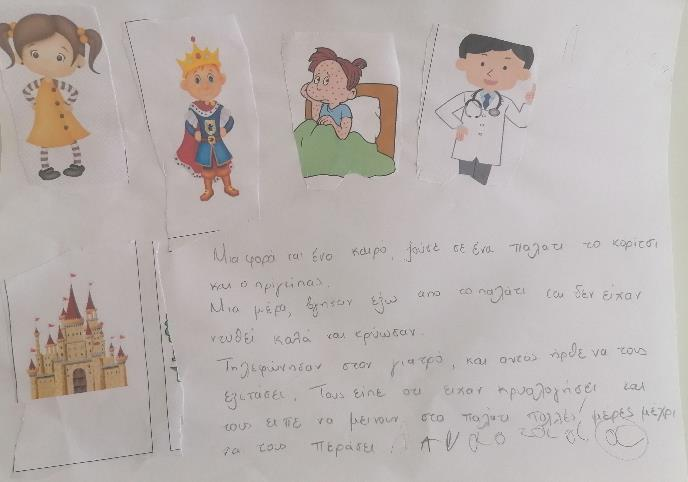 Μια φορά και ένα καιρό, ζούσε σε ένα παλάτι το κορίτσι
και ο πρίγκιπας.
Μια μέρα, βγήκαν έξω από το παλάτι και δεν είχαν
ντυθεί καλά και κρύωσαν.
Τηλεφώνησαν στον γιατρό, και αυτός ήρθε να τους
εξετάσει. Τους είπε οτι είχαν κρυολογήσει και
τους είπε να μείνουν στο παλάτι πολλές μέρες μέχρι
να τους περάσει.